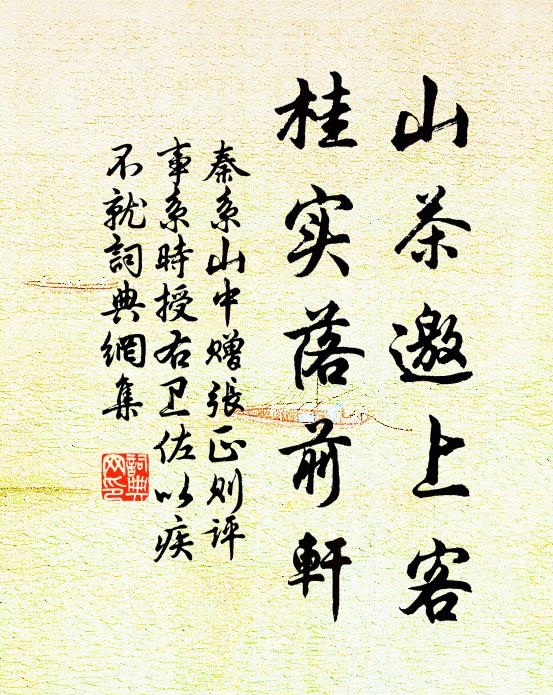 山茶邀上客
桂实落前軒
秦系山中赠張正则评
事系時授右卫佐以疾
不就詞典網集
詞典网印